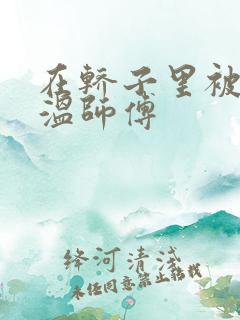 在轿子里被
温师傅
绛河清浅
未经同意禁止转载